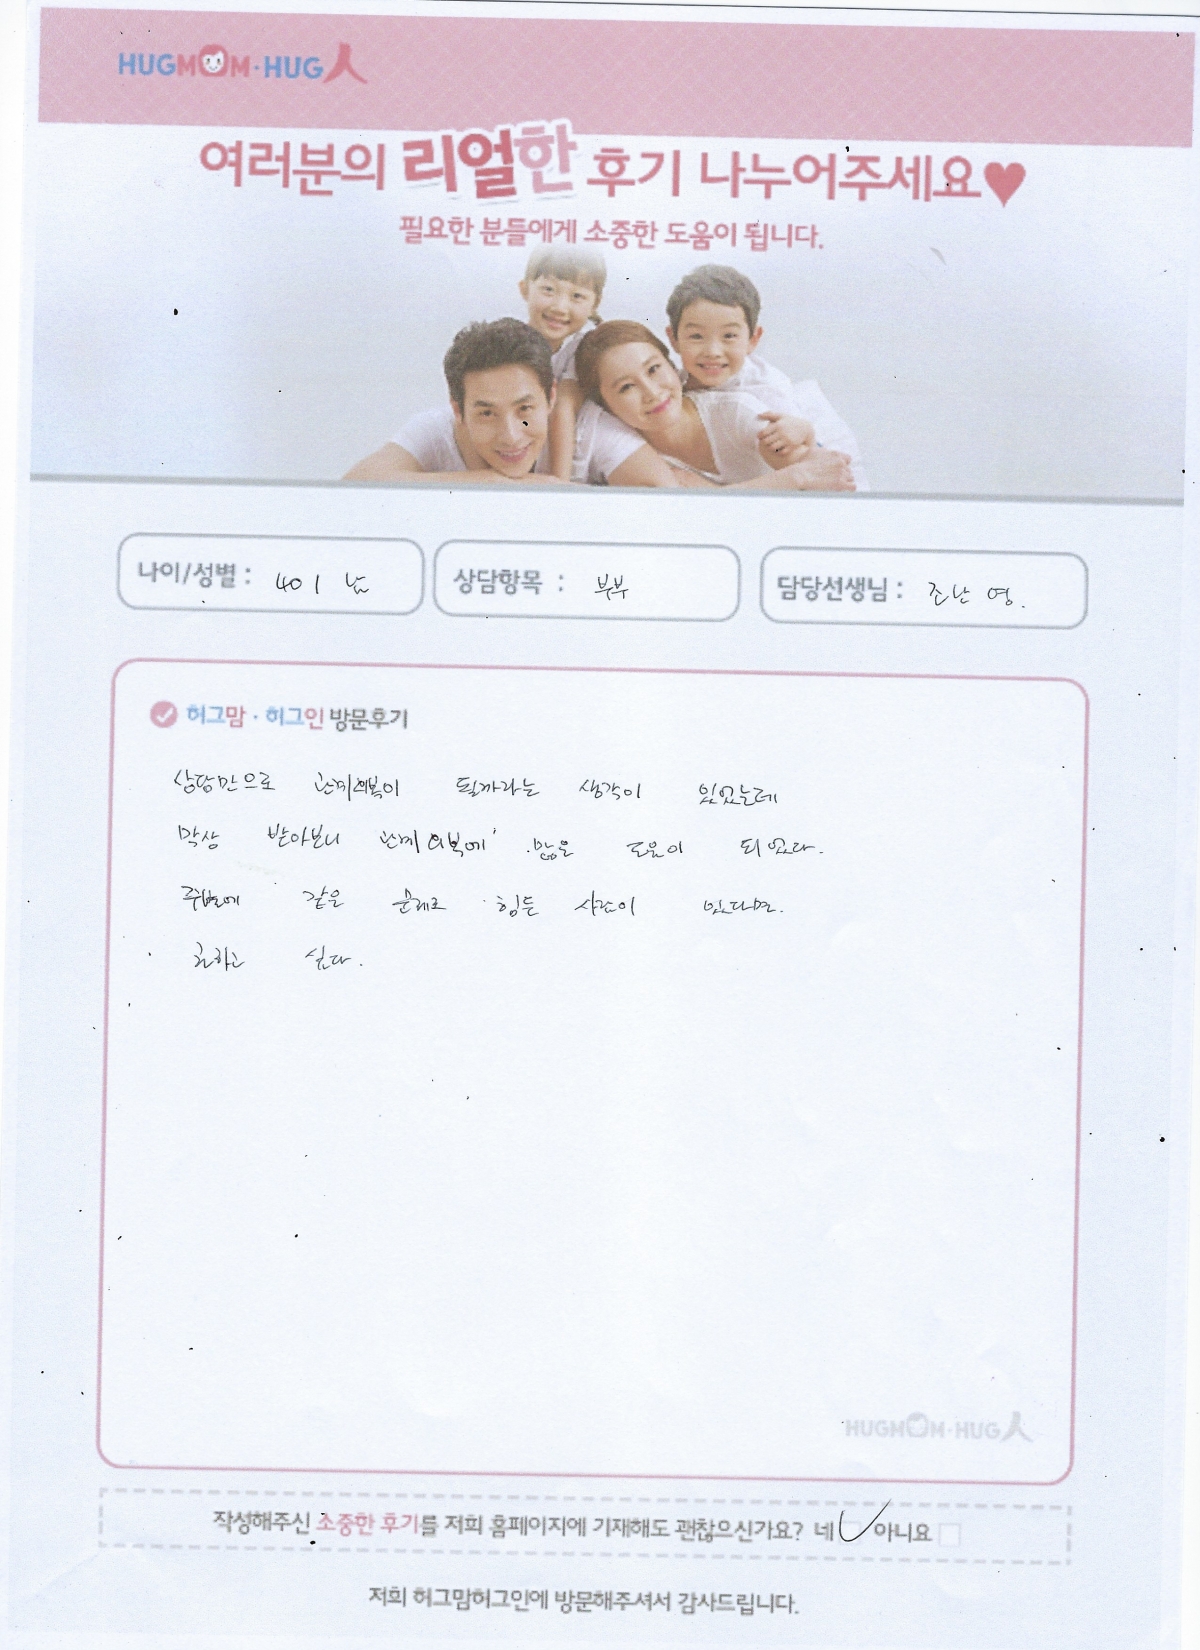 HUGMOM·HUG人
여러분의 리얼한 후기 나누어주세요♥
필요한 분들에게 소중한 도움이 됩니다.
나이/성별 : 40 / 남
상담항목 : 부부
담당선생님 : 조난영.
허그맘·허그인 방문후기
상담만으로 관계회복이 될까라는 생각이 있었는데
막상 받아보니 관계회복에 많은 도움이 되었다.
주변에 같은 문제로 힘든 사람이 있다면.
권하고 싶다.
HUGMOM·HUG人
작성해주신 소중한 후기를 저희 홈페이지에 기재해도 괜찮으신가요? 네 아니요
저희 허그맘허그인에 방문해주셔서 감사드립니다.